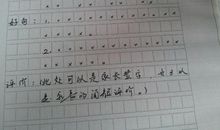 好句：1. × × × × × ×
× × × × ×
2. × × × × × × ×
× × × × ×
评价：（此处可以是家长签字，也可以
是自己的阅读评价。）